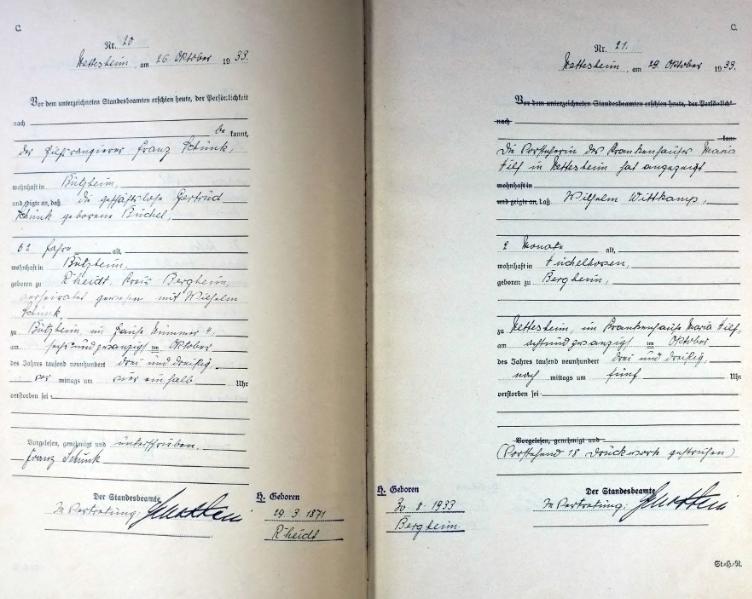 C.
Nr. 20
Nettesheim, am 26. Oktober 1933.
Vor dem unterzeichneten Standesbeamten erschien heute, der Persönlichkeit
nach
be kannt,
der Hilfsrangierer Franz Schunk,
wohnhaft in Bützheim,
und zeigte an, daß die geschäftslose Gertrud
Schunk geborene Büchel,
62 Jahre alt,
wohnhaft in Bützheim,
geboren zu Rheidt, Kreis Bergheim,
verheiratet gewesen mit Wilhelm
Schunk,
zu Bützheim im Hause Nummer
am sechsundzwanzigsten Oktober
des Jahres tausend neunhundert drei und dreißig
vor mittags um einhalb Uhr
verstorben sei
Vorgelesen, genehmigt und unterschrieben.
Franz Schunk
Der Standesbeamte
In Vertretung:
H. Geboren
29. 3. 1871
Rheidt
C.
Nr. 21.
Nettesheim, am 29. Oktober 1933.
Vor dem unterzeichneten Standesbeamten erschien heute, der Persönlich-
nach
kannt
Die Vorsteherin des Krankenhauses Maria
Hilf in Nettesheim hat angezeigt
wohnhaft in
und zeigte an, daß Wilhelm Wittkamp,
2 Monate alt,
wohnhaft in
geboren zu Bergheim,
zu Nettesheim, im Krankenhause Maria Hilf,
am achtundzwanzigsten Oktober
des Jahres tausend neunhundert drei und dreißig
nach mittags um fünf Uhr
verstorben sei
Vorgelesen, genehmigt und
(Vorstehend 18 Druckworte gestrichen)
Der Standesbeamte
In Vertretung:
H. Geboren
30. 8. 1933
Bergheim